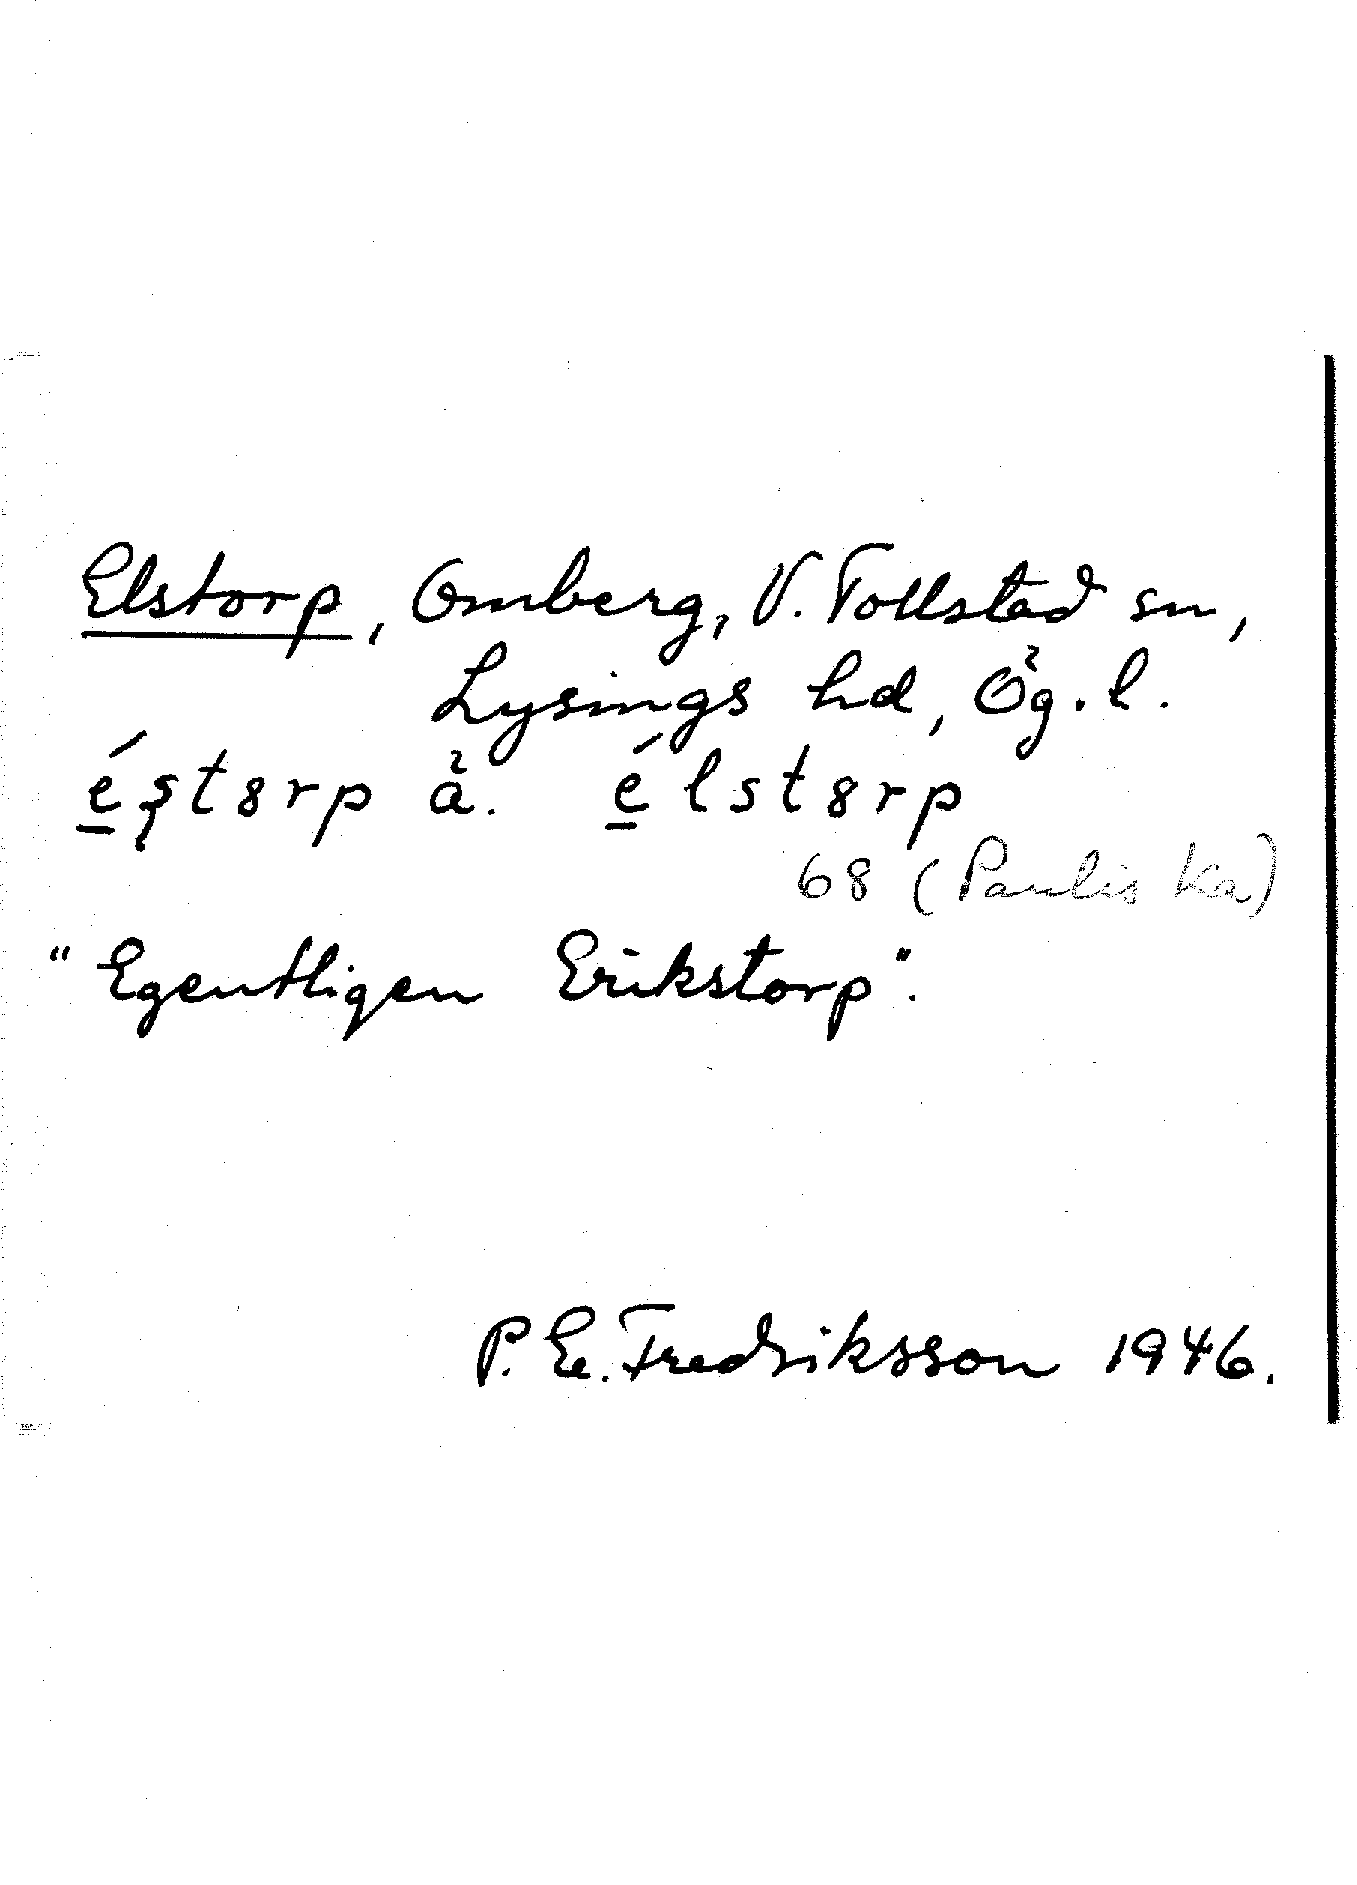 Elstorp, Omberg, V. Tollstad sn,
Lysings hd, Ög. l.
é̲ʂt8rp å. é̲lst8rp
68 (Paulis Ka)
"Egentligen Erikstorp".
P. E. Fredriksson 1946.